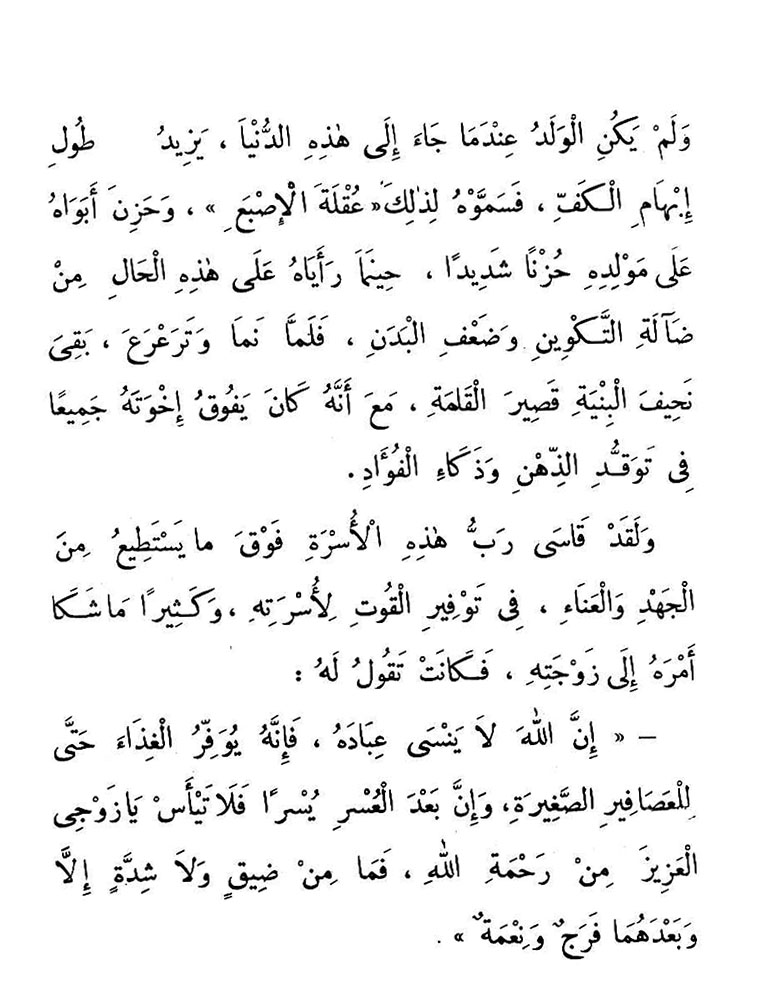 وَلَمْ يَكُنِ الْوَلَدُ عِنْدَمَا جَاءَ إِلَى هٰذِهِ الدُّنْيَا ، يَزِيدُ طُولِ
إِبْهَامِ الْكَفِّ ، فَسَمَّوْهُ لِذٰلِكَ « عُقْلَةَ الْإِصْبَعِ » ، وَحَزِنَ أَبَوَاهُ
عَلَى مَوْلِدِهِ حُزْنًا شَدِيدًا ، حِينَمَا رَأَيَاهُ عَلَى هٰذِهِ الْحَالِ مِنْ
ضَآلَةِ التَّكْوِينِ وَضَعْفِ الْبَدَنِ ، فَلَمَّا نَمَا وَتَرَعْرَعَ ، بَقِىَ
نَحِيفَ الْبِنْيَةِ قَصِيرَ الْقَامَةِ ، مَعَ أَنَّهُ كَانَ يَفُوقُ إِخْوَتَهُ جَمِيعًا
فِى تَوَقُّدِ الذِّهْنِ وَذَكَاءِ الْفُؤَادِ .
وَلَقَدْ قَاسَى رَبُّ هٰذِهِ الْأُسْرَةِ فَوْقَ مايَسْتَطِيعُ مِنَ
الْجَهْدِ وَالْعَنَاءِ ، فِى تَوْفِيرِ الْقُوتِ لِأُسْرَتِهِ ، وَكَثِيرًا مَا شَكَا
أَمْرَهُ إِلَى زَوْجَتِهِ ، فَكَانَتْ تَقُولُ لَهُ :
– « إِنَّ اللّٰهَ لاَ يَنْسَى عِبَادَهُ ، فَإِنَّهُ يُوَفِّرُ الْغِذَاءَ حَتَّى
لِلْعَصَافِيرِ الصَّغِيرَةِ، وَإِنَّ بَعْدَ الْعُسْرِ يُسْرًا فَلَا تَيْأَسْ يَا زَوْجِى
الْعَزِيزَ مِنْ رَحْمَةِ اللّٰهِ ، فَمَا مِنْ ضِيقٍ وَلاَ شِدَّةٍ إِلاَّ
وَبَعْدَهُمَا فَرَجٌ وَنِعْمَةٌ » .